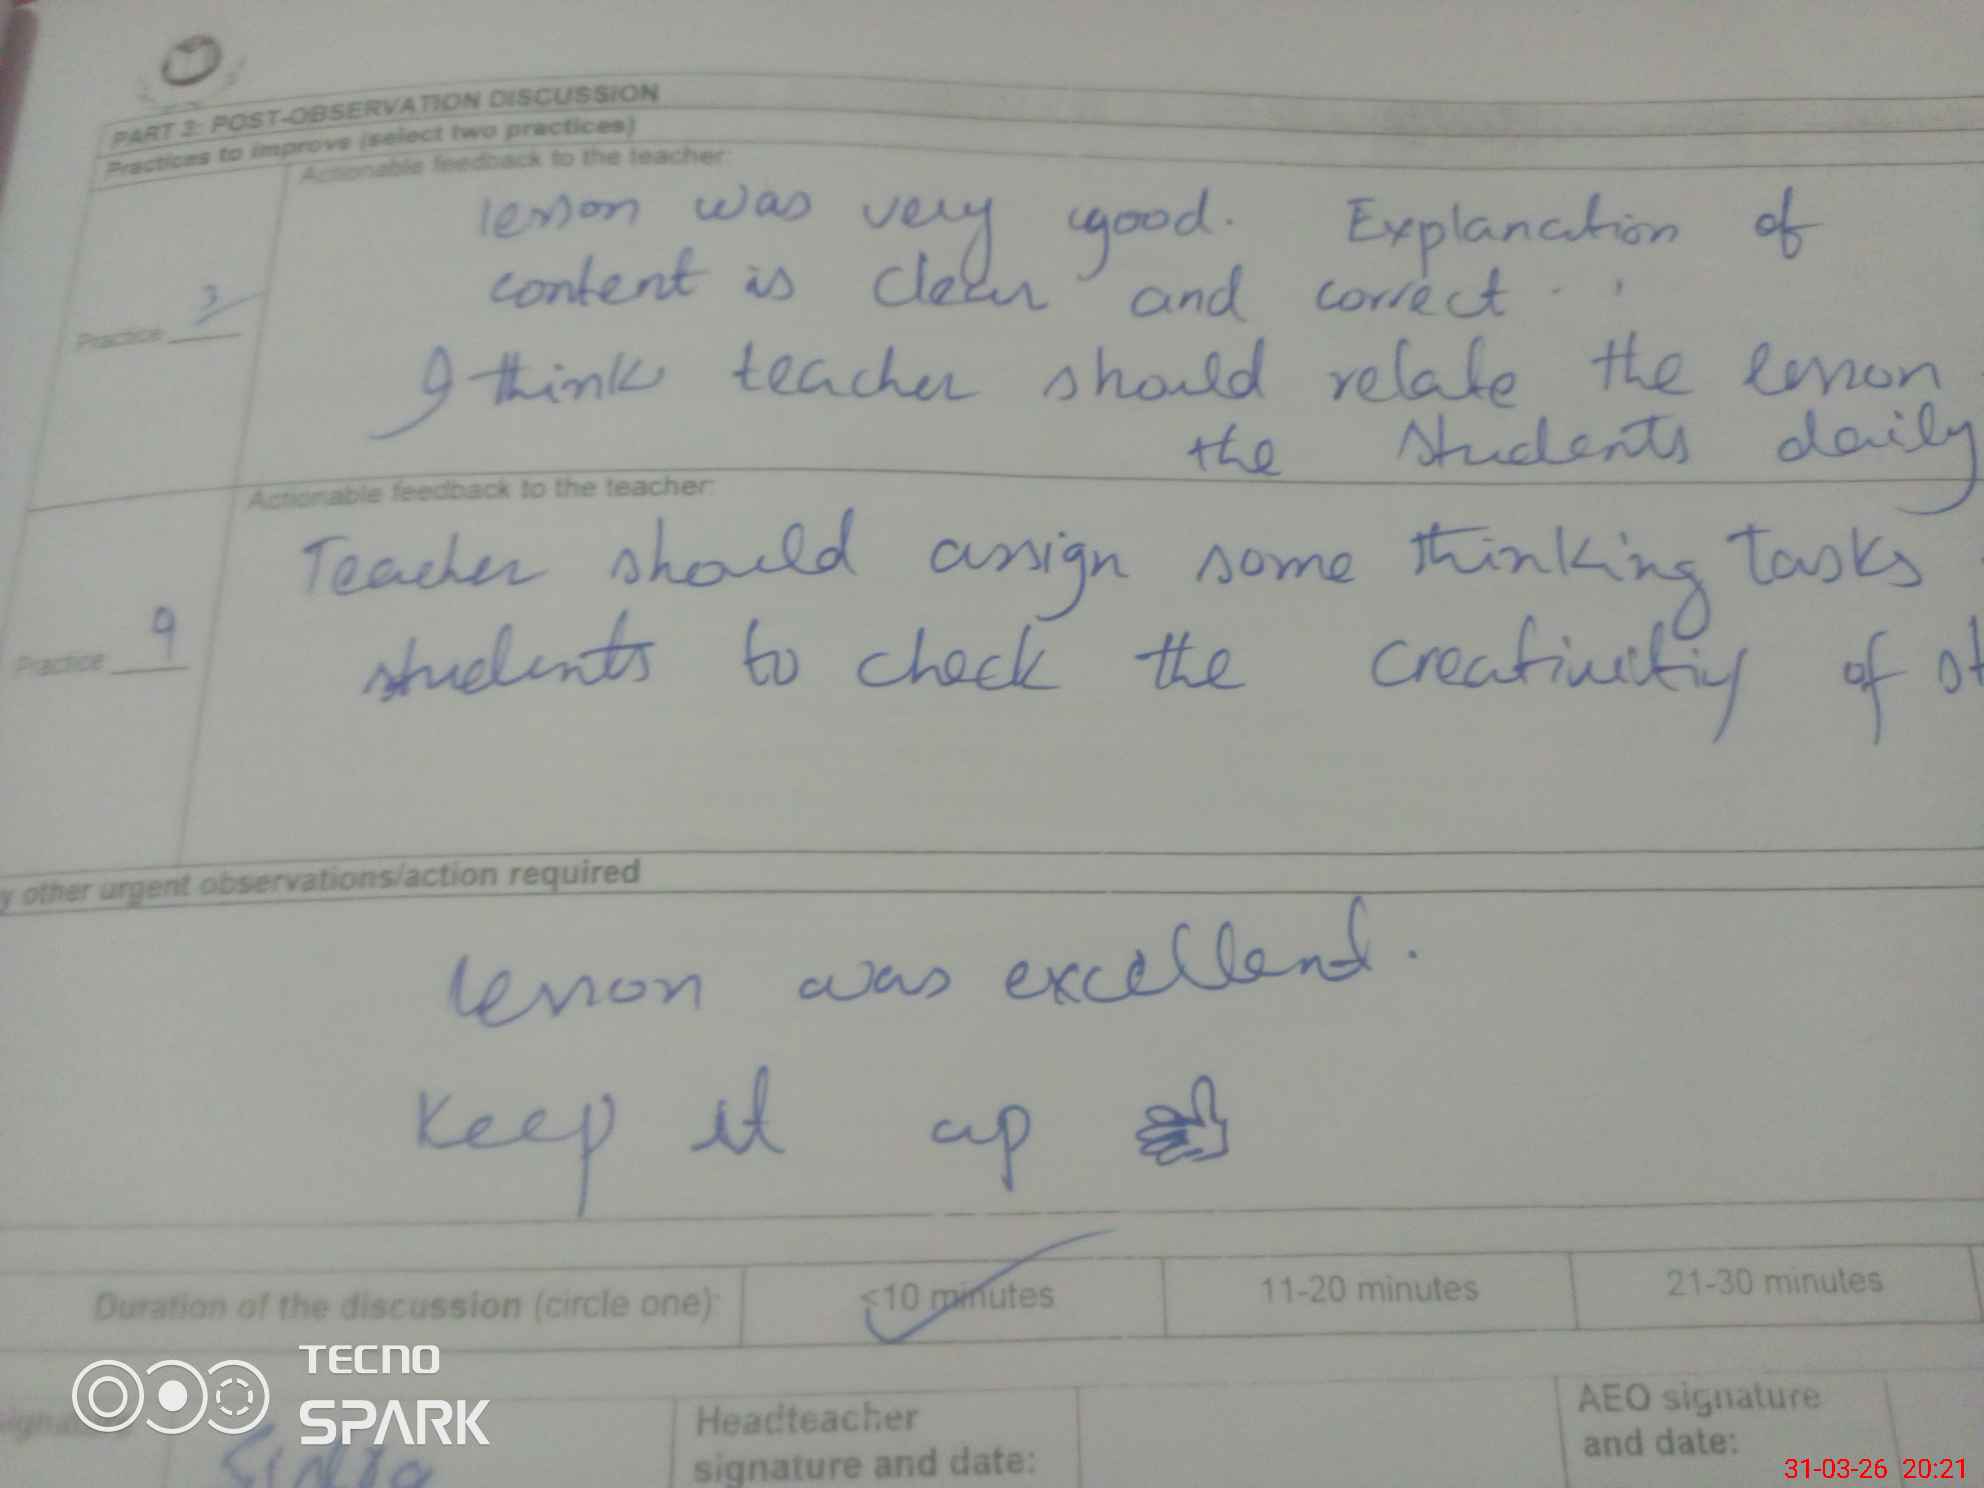 PART 2: POST-OBSERVATION DISCUSSION
Practices to improve (select two practices)
Actionable feedback to the teacher:
lesson was very good. Explanation of
content is clear and correct.
Practice 3
I think teacher should relate the lesson
the students daily
Actionable feedback to the teacher:
Teacher should assign some thinking tasks
Practice 9
students to check the creativitiy of st
y other urgent observations/action required
lesson was excellent.
Keep it up
Duration of the discussion (circle one): <10 minutes 11-20 minutes 21-30 minutes
TECNO
SPARK
Headteacher
signature and date:
AEO signature
and date:
31-03-26 20:21